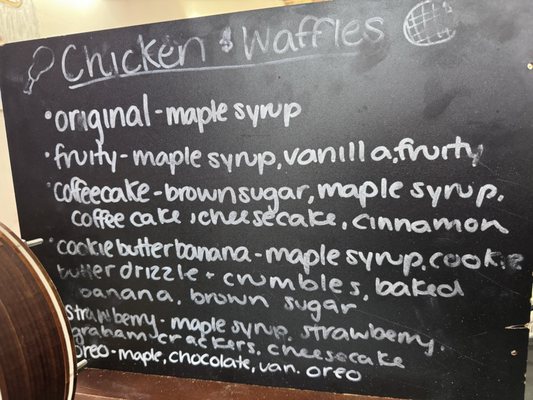 Chicken & Waffles
• original - maple syrup
• fruity - maple syrup, vanilla, fruity
• coffeecake - brown sugar, maple syrup,
coffee cake, cheesecake, cinnamon
• cookie butter banana - maple syrup, cookie
butter drizzle + crumbles, baked
banana, brown sugar
strawberry - maple syrup, strawberry,
graham crackers, cheesecake
oreo - maple, chocolate, van. oreo